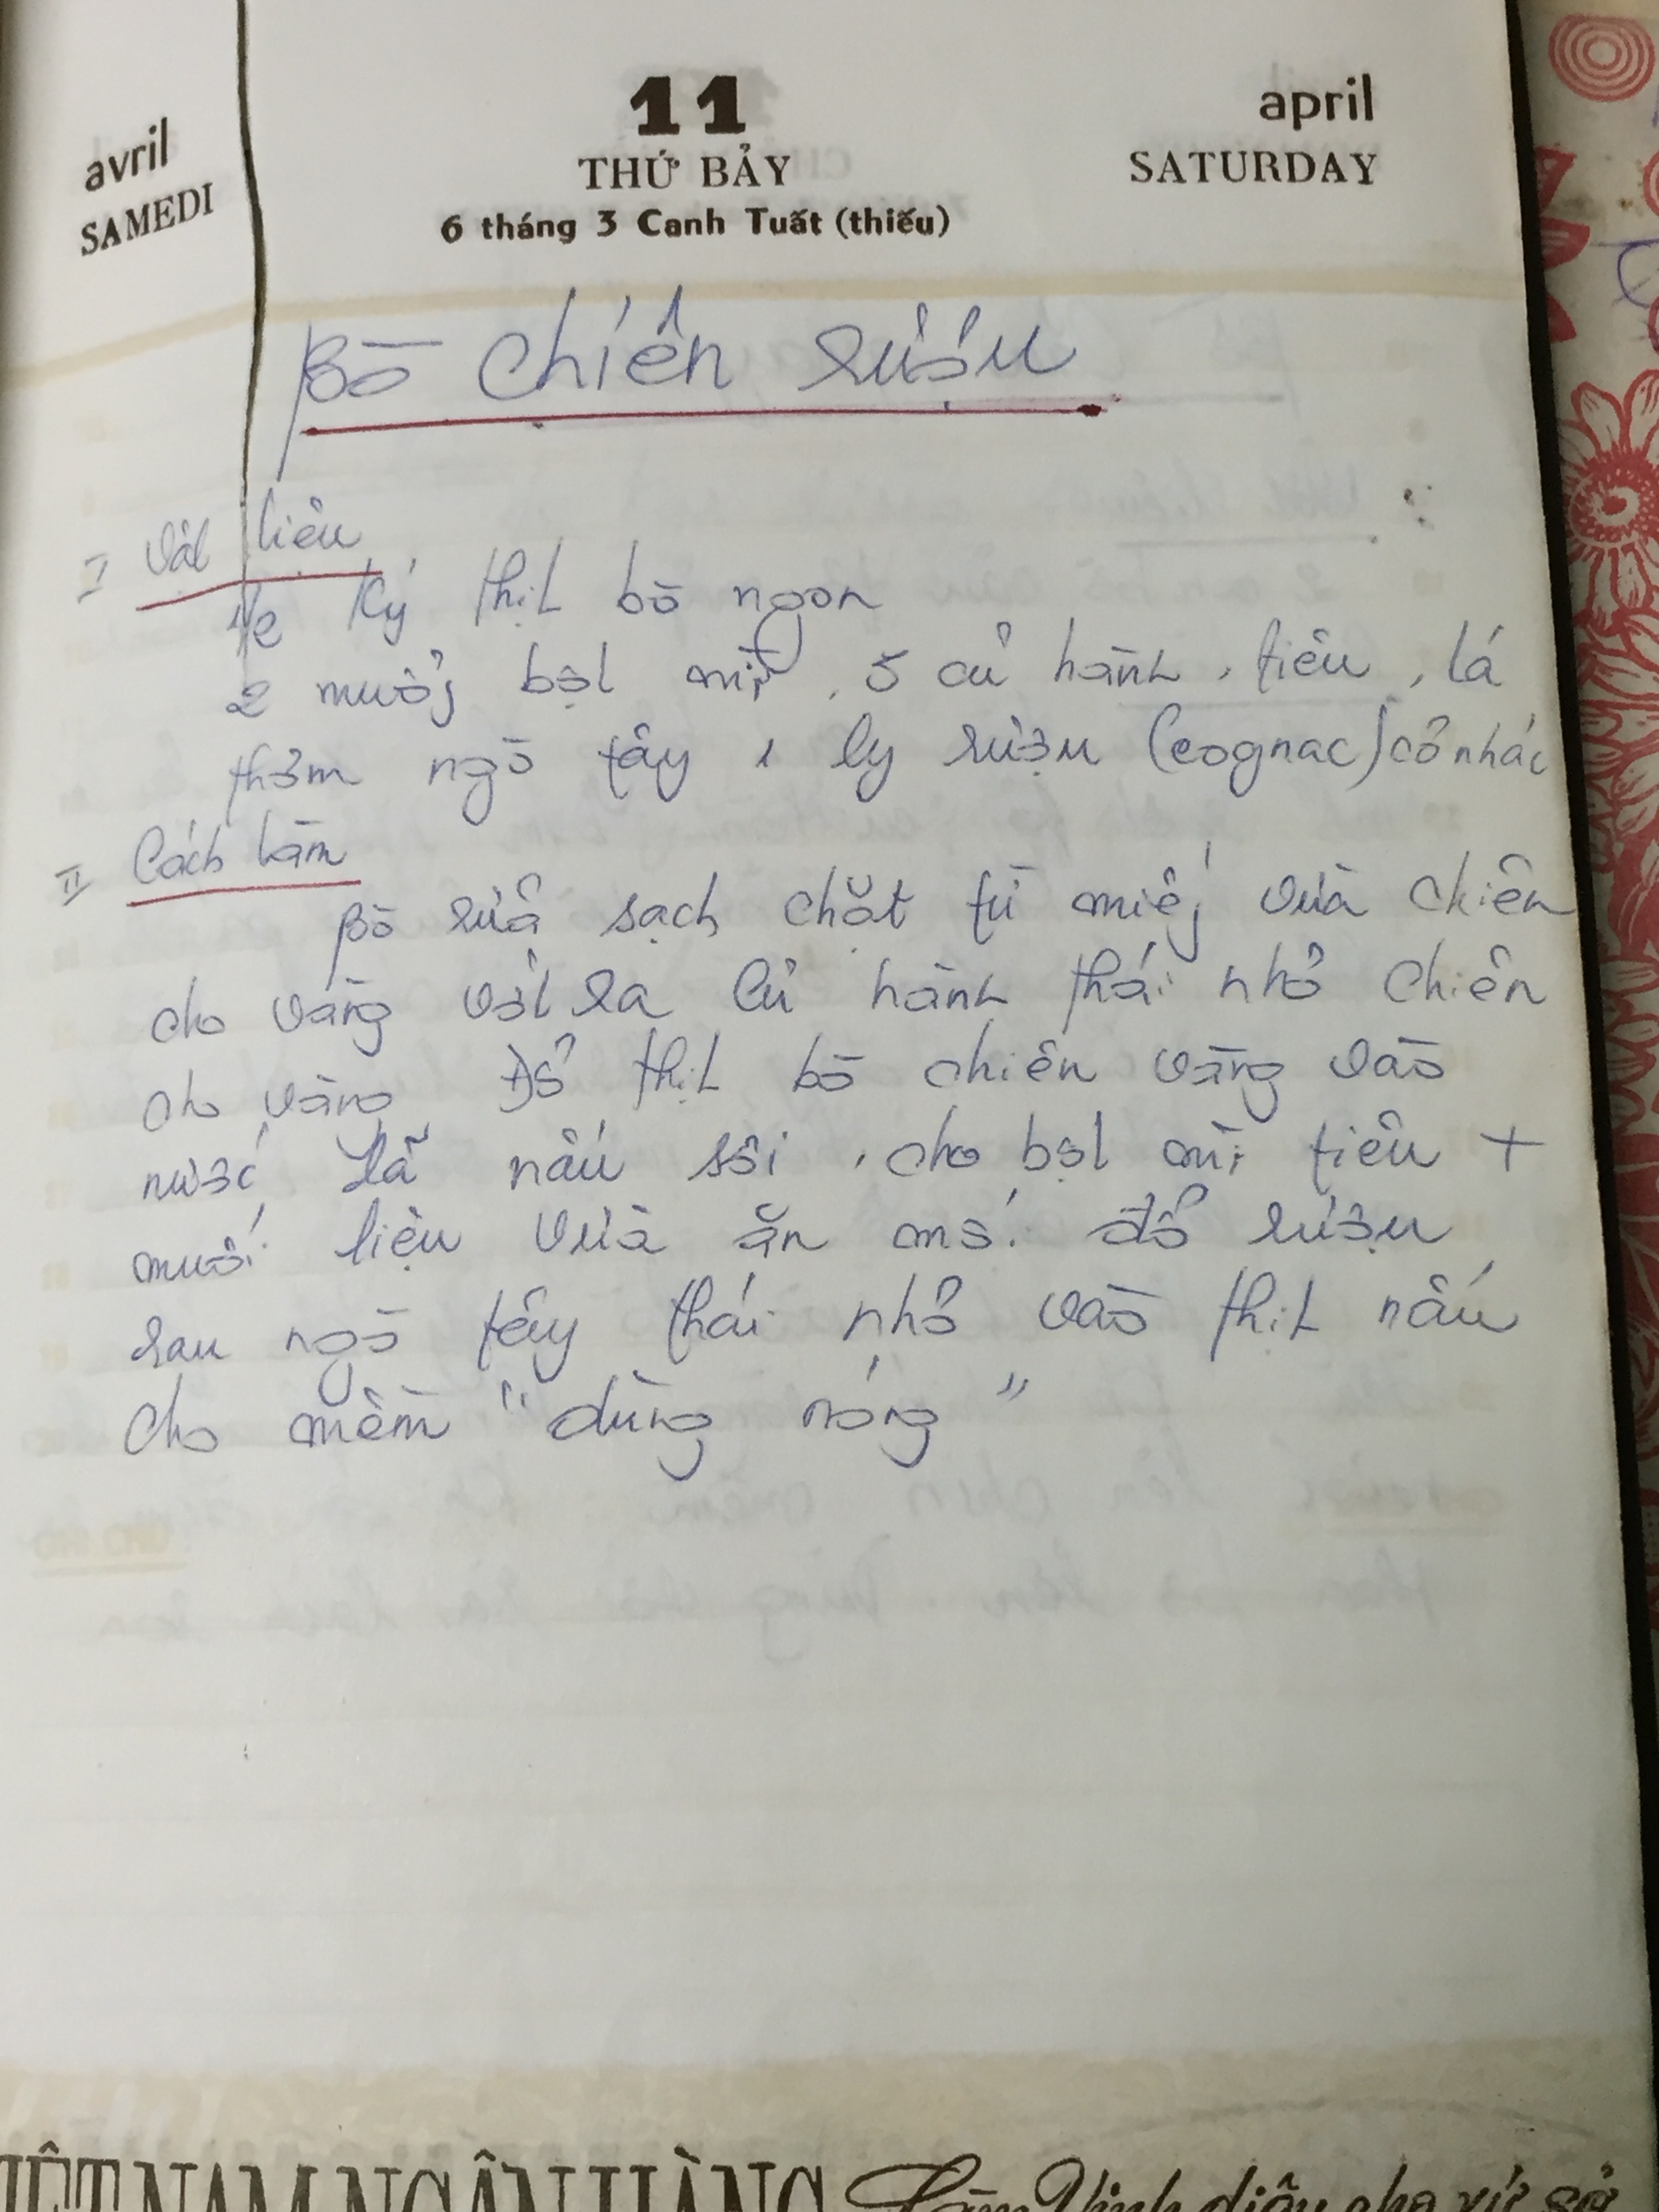 avril
SAMEDI
11
THỨ BẢY
6 tháng 3 Canh Tuất (thiếu)
april
SATURDAY
Bò chiên rượu
I Vật liệu
1/2 ký thịt bò ngon
2 muổng bột mì, 5 củ hành, tiêu, lá
thơm ngò tây 1 ly rượu (cognac) cô nhác
II Cách làm
Bò rửa sạch chặt từ miếng vừa chiên
cho vàng vớt ra củ hành thái nhỏ chiên
cho vàng Đổ thịt bò chiên vàng vào
nước đã nấu sôi, cho bột mì tiêu +
muối liệu vừa ăn mới đổ rượu
rau ngò tây thái nhỏ vào thịt nấu
cho mềm "dùng nóng"
VIỆT NAM NGÂN HÀNG